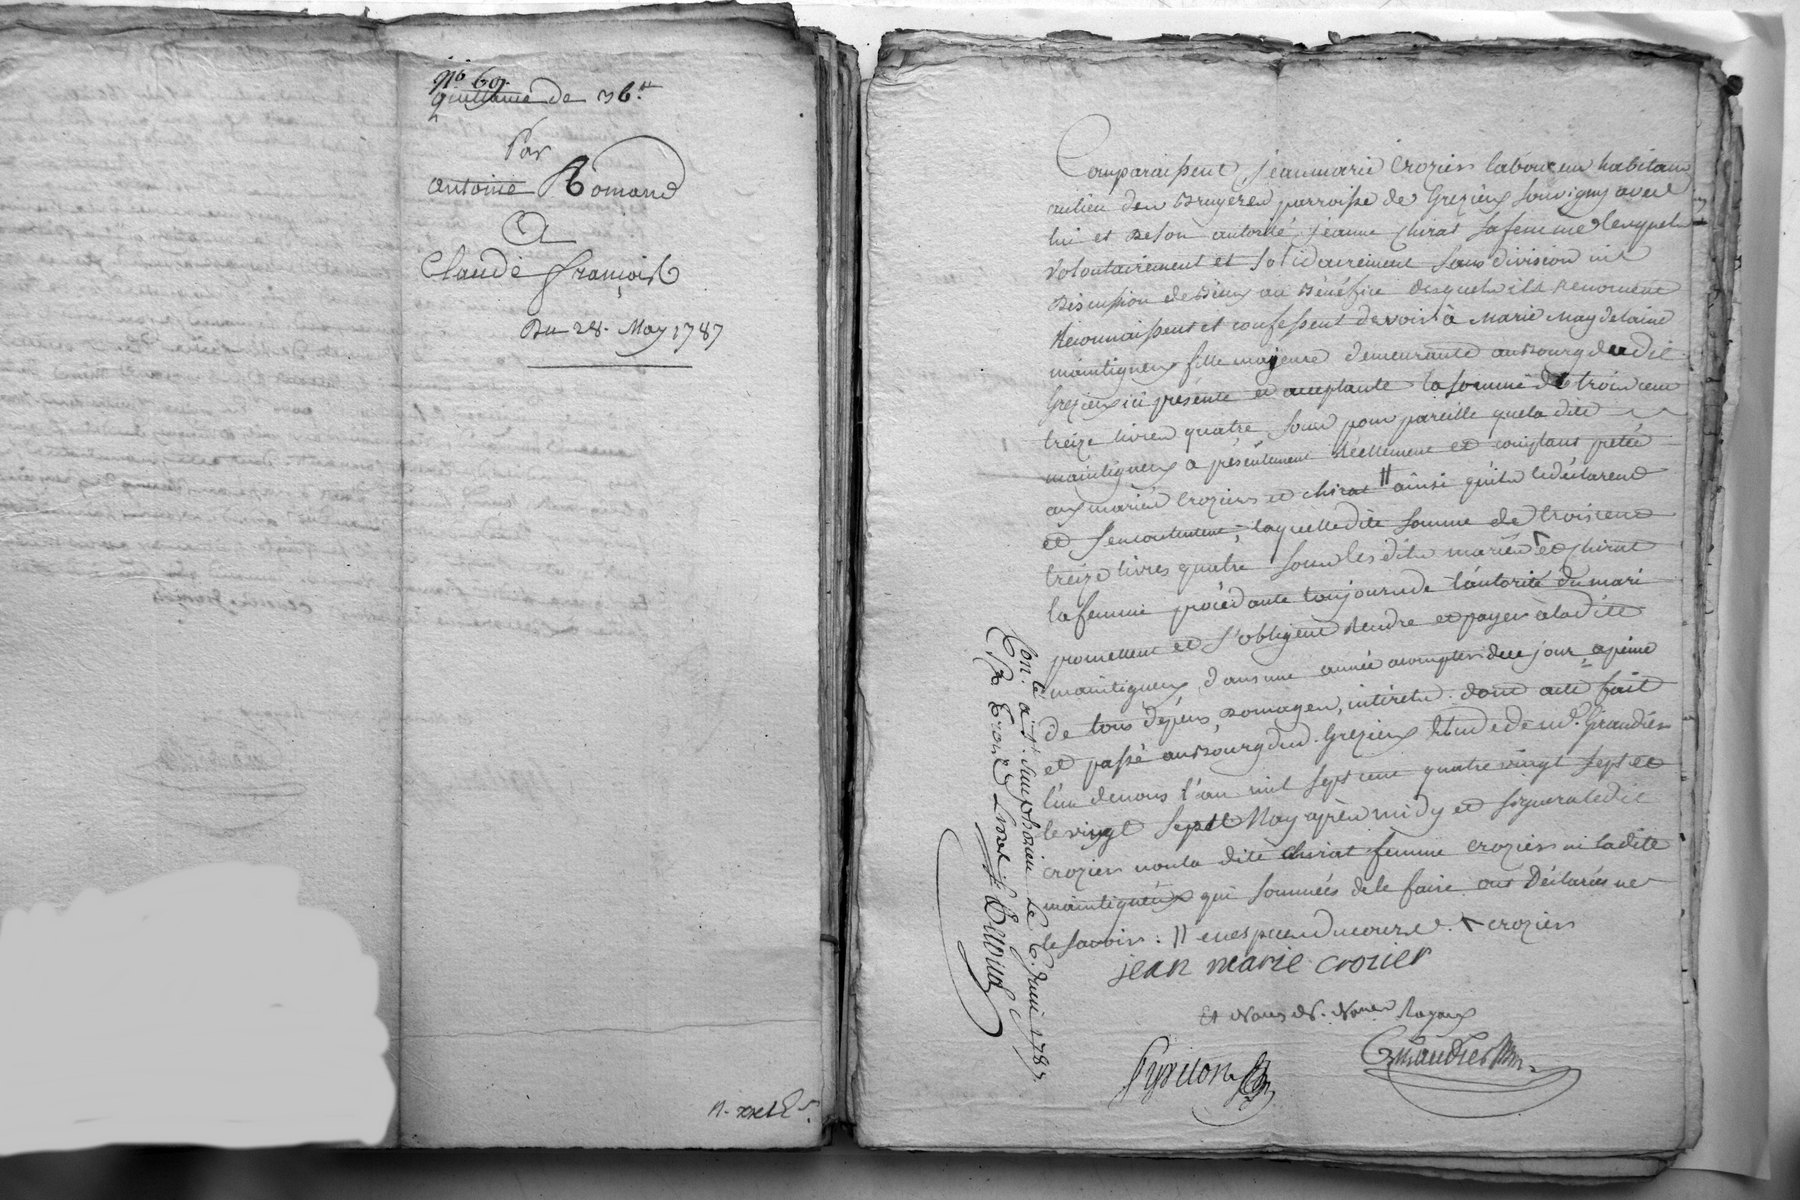 No 69.
quittance de 36.tt
Par
antoine Romand
A
Claude françois
Du 28. May 1787
Comparaissent, jeanmarie Crozier laboureur habitant
aulieu des Bruyeres parroisse de Grezieux Souvigny avec
lui et de son autorité, jeanne chirat sa femme lesquels
volontairement et solidairement sans division ni
discussion de biens au bénéfice desquels ils Renoncent
Reconnaissent et confessent devoir à Marie Magdelaine
maintigneux fille majeure demeurante au Bourg dudit
Grezieux ici présente et acceptante la somme de trois cent
treize livres quatre sous pour pareille que la dite
maintigneux a présentement Réellement et comptant pretée
aux mariés Croziers et chirat // ainsi qu'ils le déclarent
et s'en contentent, laquelle dite somme de trois cent
treize livres quatre sous les dits mariés et chirat
la femme procédante toujours de l'autorité du mari
promettent et s'obligent Rendre et payer à la dite
maintigneux dans une année a compter de ce jour a peine
de tous dépens domages, intérets. dont acte fait
et passé au Bourg dud. Grezieux Etude de md. Giraudier
l'un de nous l'an mil sept cent quatre vingt sept et
le vingt sept May après midy et signera ledit
crozier non la dite chirat femme crozier ni la dite
maintigneux qui sommées de le faire ont Déclarées ne
le savoir. // en especes du cours. crozier
jean marie crozier
Et Nous Nres Royaux
Giraudier
Con. lé a St. Simphorien le 6. Juin 1787.